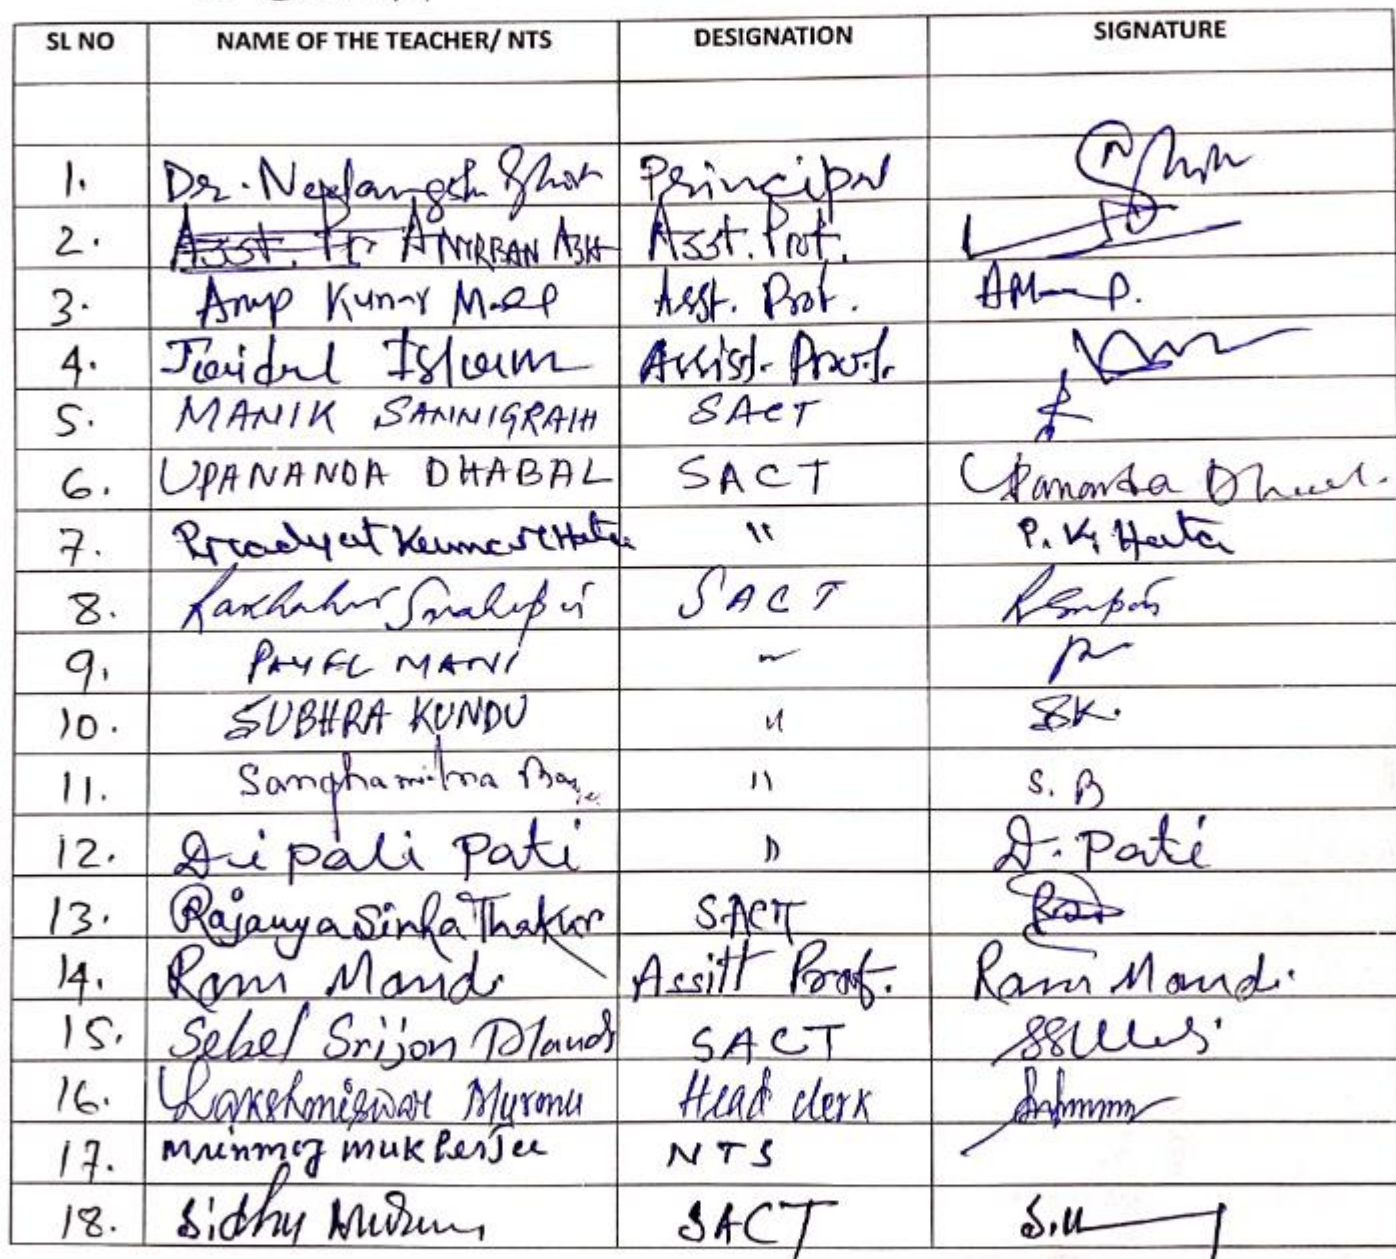 SL NO NAME OF THE TEACHER/ NTS DESIGNATION SIGNATURE
1. Dr. Nepfangsh Ghosh Principal
2. Asst. Pr ANIRBAN ASH Asst. Prof.
3. Anup Kumar Asst. Prof.
4. Islam Assist. Prof.
5. MANIK SANNIGRAIH SACT
6. UPANANDA DHABAL SACT Upananda
7. Pradyut Kumar Hata " P. K. Hata
8. SACT
9. PAYEL MANI "
10. SUBHRA KUNDU " SK.
11. Sanghamitra " S. B
12. Dipali Pati " D. Pati
13. Rajanya Sinha Thakur SACT
14. Ram Mandi Assitt Prof. Ram Mandi
15. Sebel Srijon SACT
16. Lakshmiswar Murmu Head clerk
17. Mrinmoy mukherjee NTS
18. Sidhu Murmu SACT